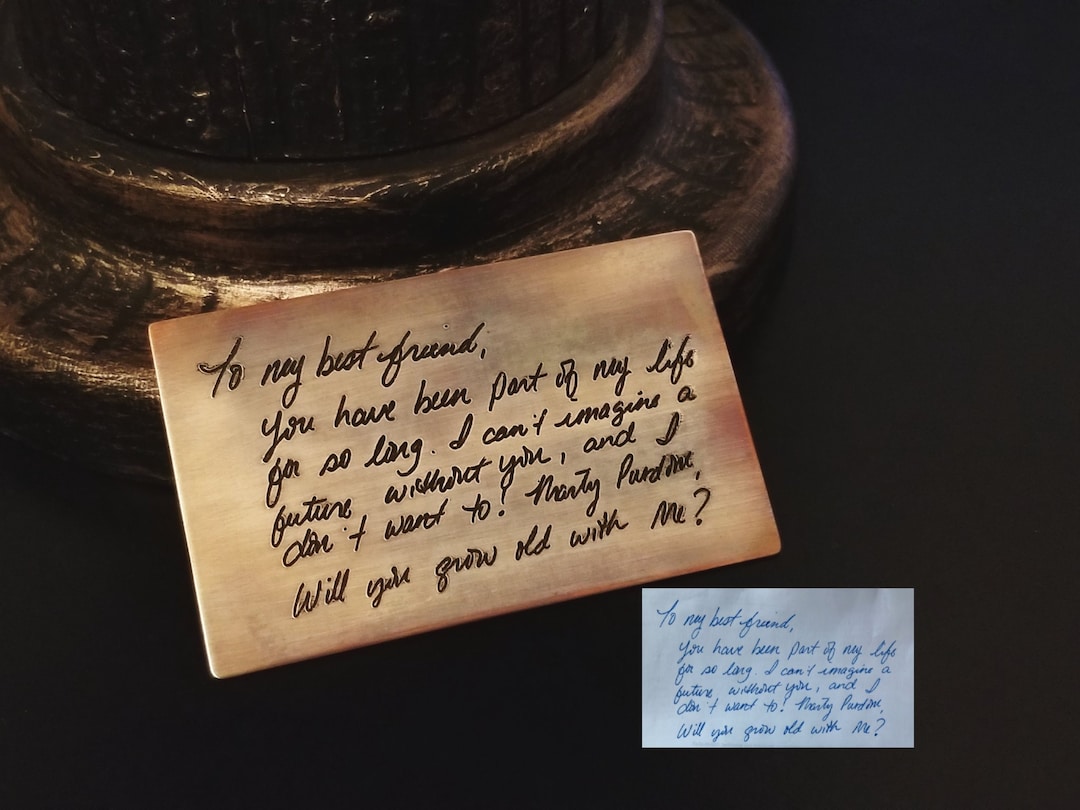 To my best friend,
You have been part of my life
for so long. I can't imagine a
future without you, and I
don't want to! Marty Purdine,
Will you grow old with Me?
To my best friend,
You have been part of my life
for so long. I can't imagine a
future without you, and I
don't want to! Marty Purdine,
Will you grow old with Me?